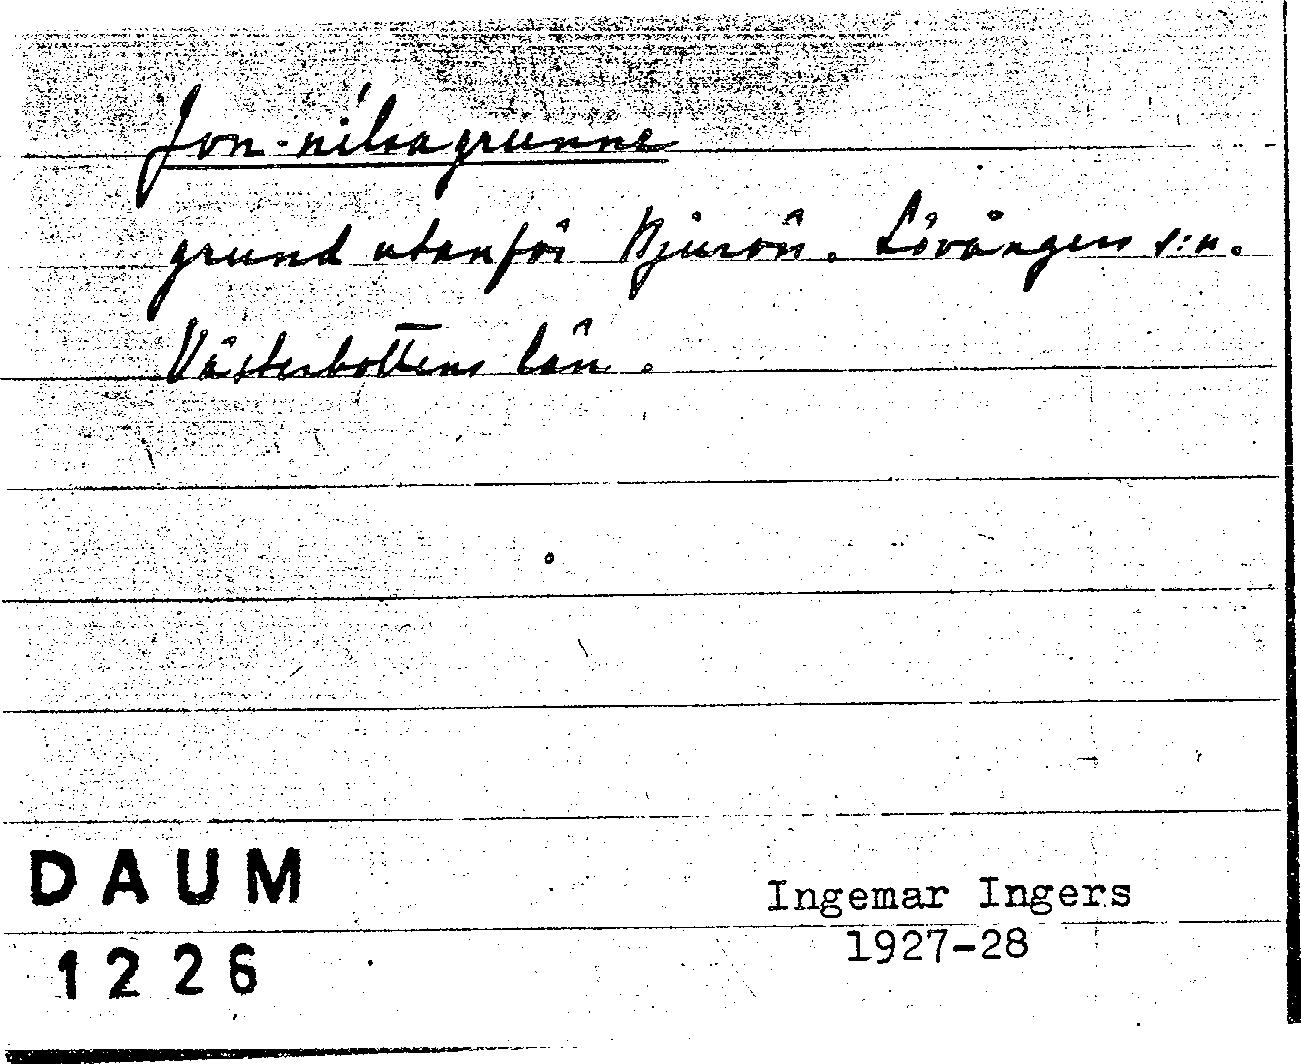 Jon-nilsagrunne
grund utanför Bjurön. Lövångers s:n.
Västerbottens län.
DAUM
1226
Ingemar Ingers
1927-28